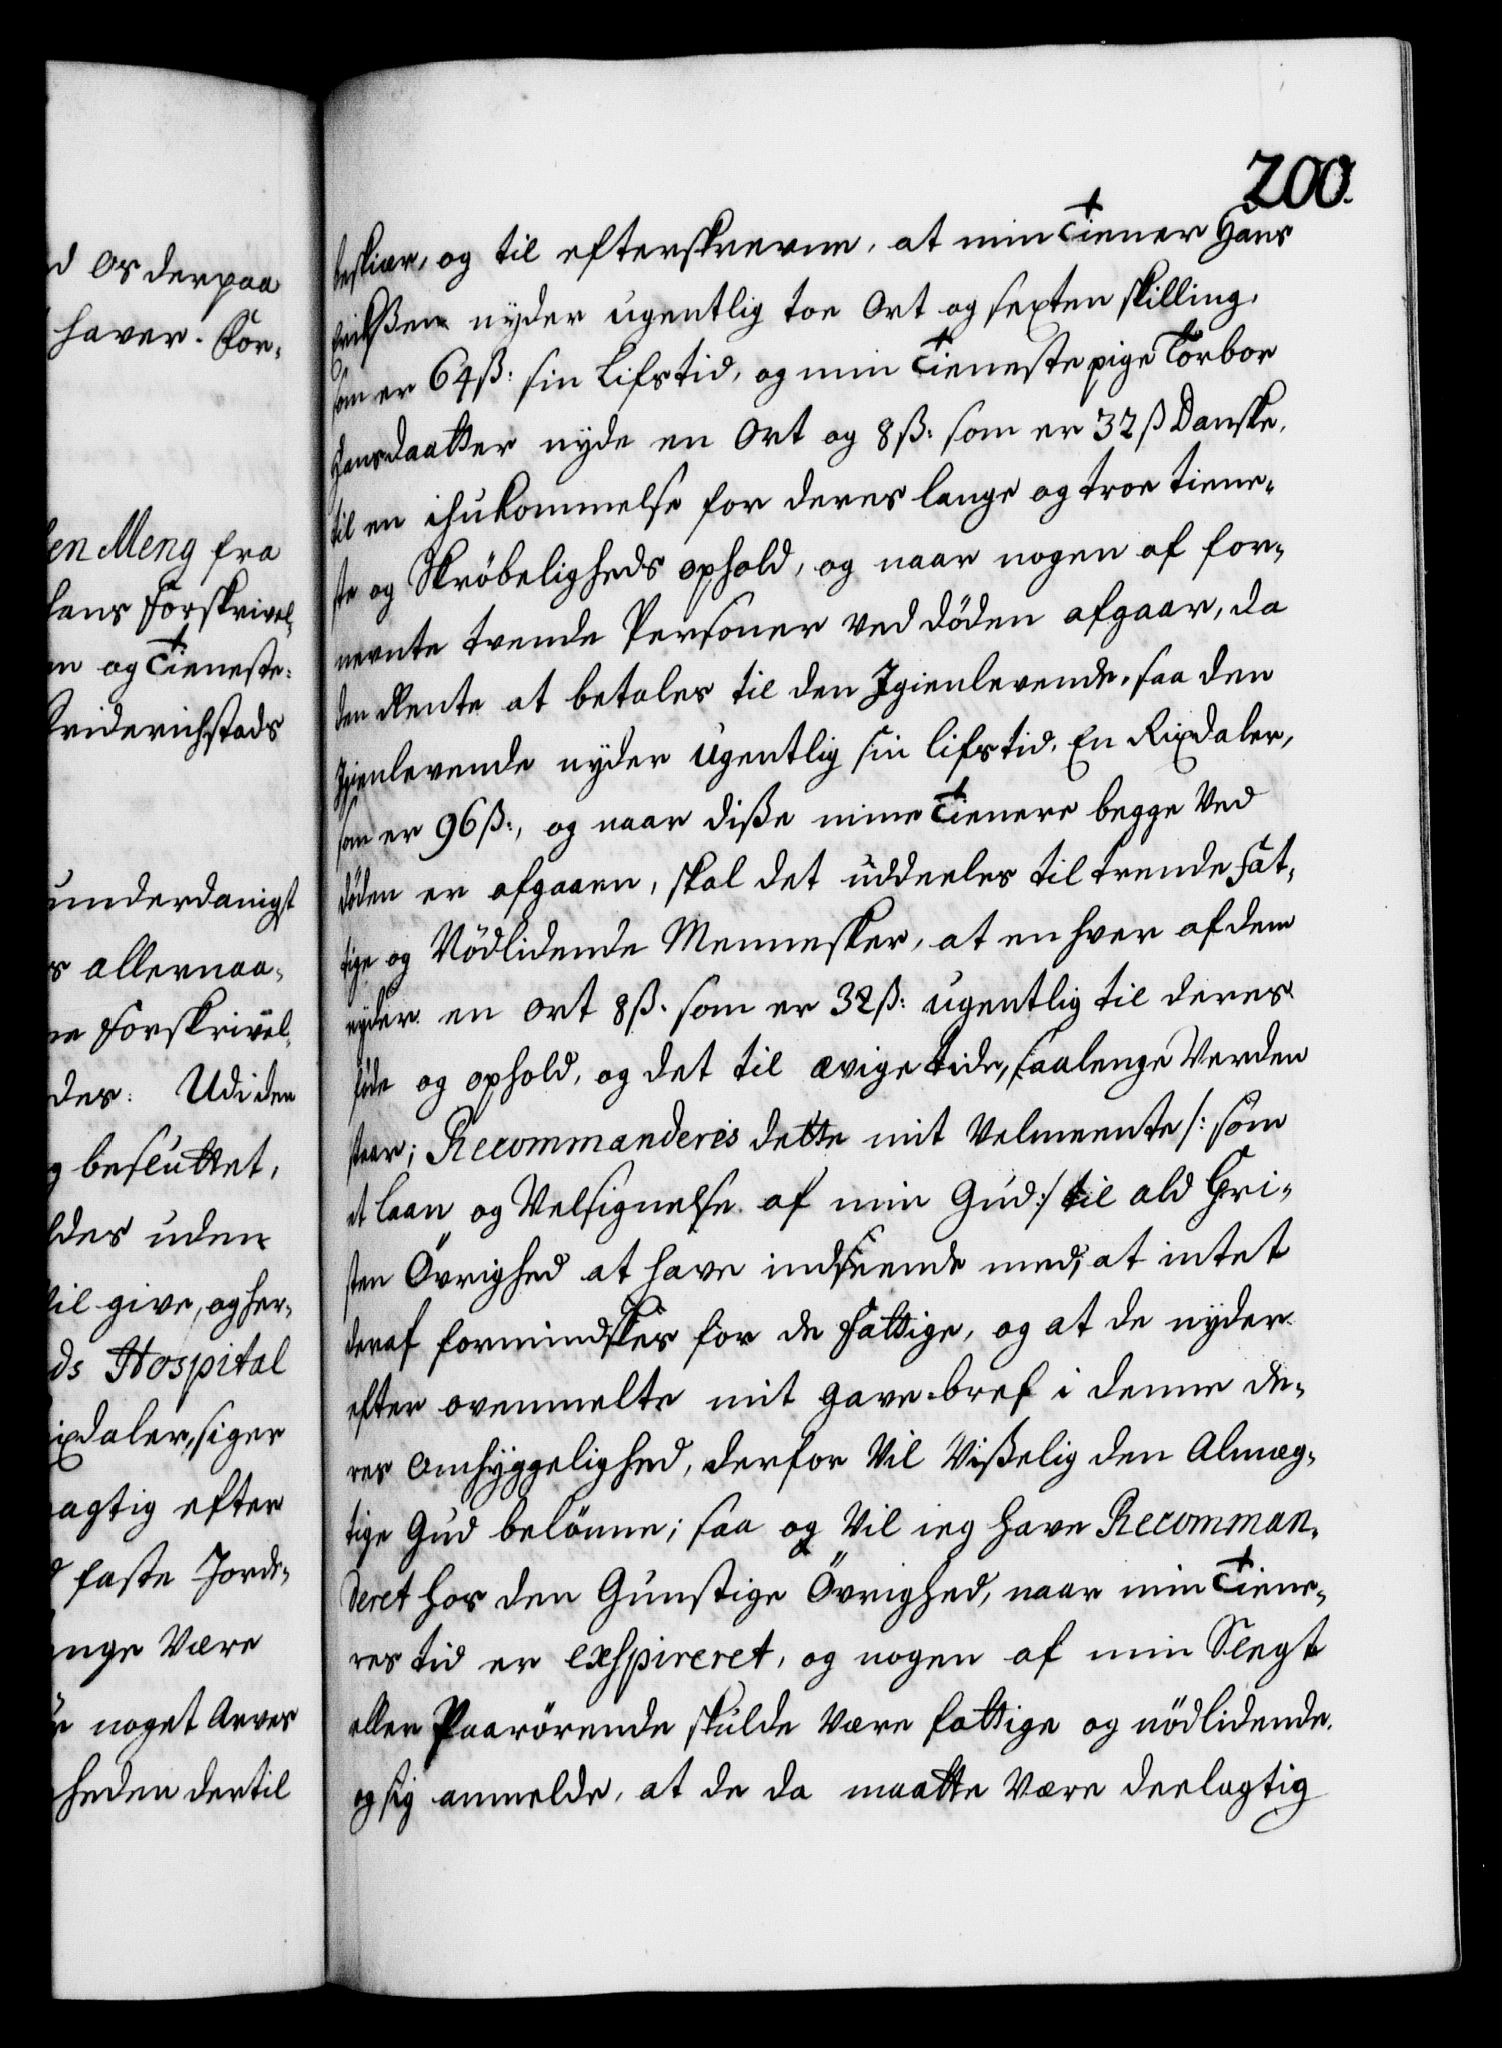 d os derpaa
haver. For-
en Meng fra
hans Forskrivel-
en og Tieneste-
Friderichstads
underdanigst
s allernaa-
ne Forskrivel-
des: Udi den
g besluttet,
ldes uden
Vil give, og her-
ds Hospital
ixdaler, siger
agtig efter
d faste Jorde-
enge Være
noget Arves
heden dertil
200.
beskiær, og til efterskrevne, at min Tiener Hans
nyder ugentlig toe Ort og sexten skilling,
som er 64 ß: sin Lifstid, og min Tieneste pige Torbor
Hansdaatter nyde en Ort og 8 ß: som er 32 ß Danske,
til en ihukommelse for deres lange og troe tiene-
ste og Skröbeligheds ophold, og naar nogen af for-
nevnte tvende Personer ved döden afgaar, da
den Rente at betales til den Igienlevende, saa den
Igienlevende nyder ugentlig sin lifstid, En Rixdaler,
som er 96 ß:, og naar diße mine Tienere begge Ved
döden er afgaaen, skal det uddeeles til trende Fat-
tige og Nödlidende Mennesker, at en hver af dem
nyder en ort 8 ß. som er 32 ß: ugentlig til deres
föde og ophold, og det til ævige tide, saalenge Verden
staar; Recommanderes dette mit Velmeente /: som
et laan og Velsignelse af min Gud :/ til ald Cri-
sten Övrighed at have indseende med, at intet
deraf formindskes for de Fattige, og at de nyder
efter ovenmelte mit gave-bref i denne de-
res omhyggelighed, derfor Vil Vißelig den Almæg-
tige Gud belönne; saa og Vil ieg have Recomman-
deret hos den Gunstige Övrighed, naar min Tiene-
res tid er exspireret, og nogen af min Slegt
eller Paarörende skulde Være fattige og nödlidende,
og sig anmelde, at de da maatte Være deelagtig